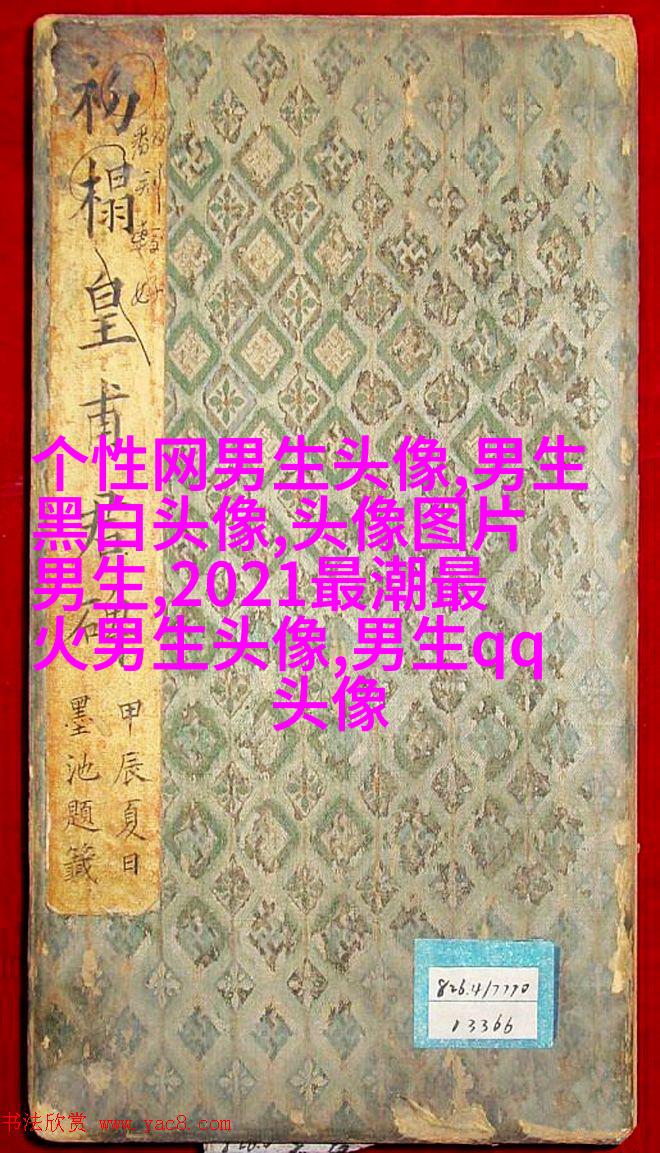 初榻皇甫君碑
甲辰夏日
墨池題籤
个性网男生头像,男生
黑白头像,头像图片
男生,2021最潮最
火男生头像,男生qq
头像
826.4/7770
13366
书法欣赏 www.yac8.com